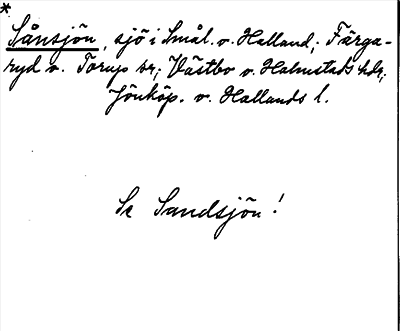 *
Sånsjön, sjö i Smål. o. Halland; Färga-
ryd o. Torup sr; Västbo o. Halmstads hdr;
Jönköp. o. Hallands l.
Se Sandsjön!